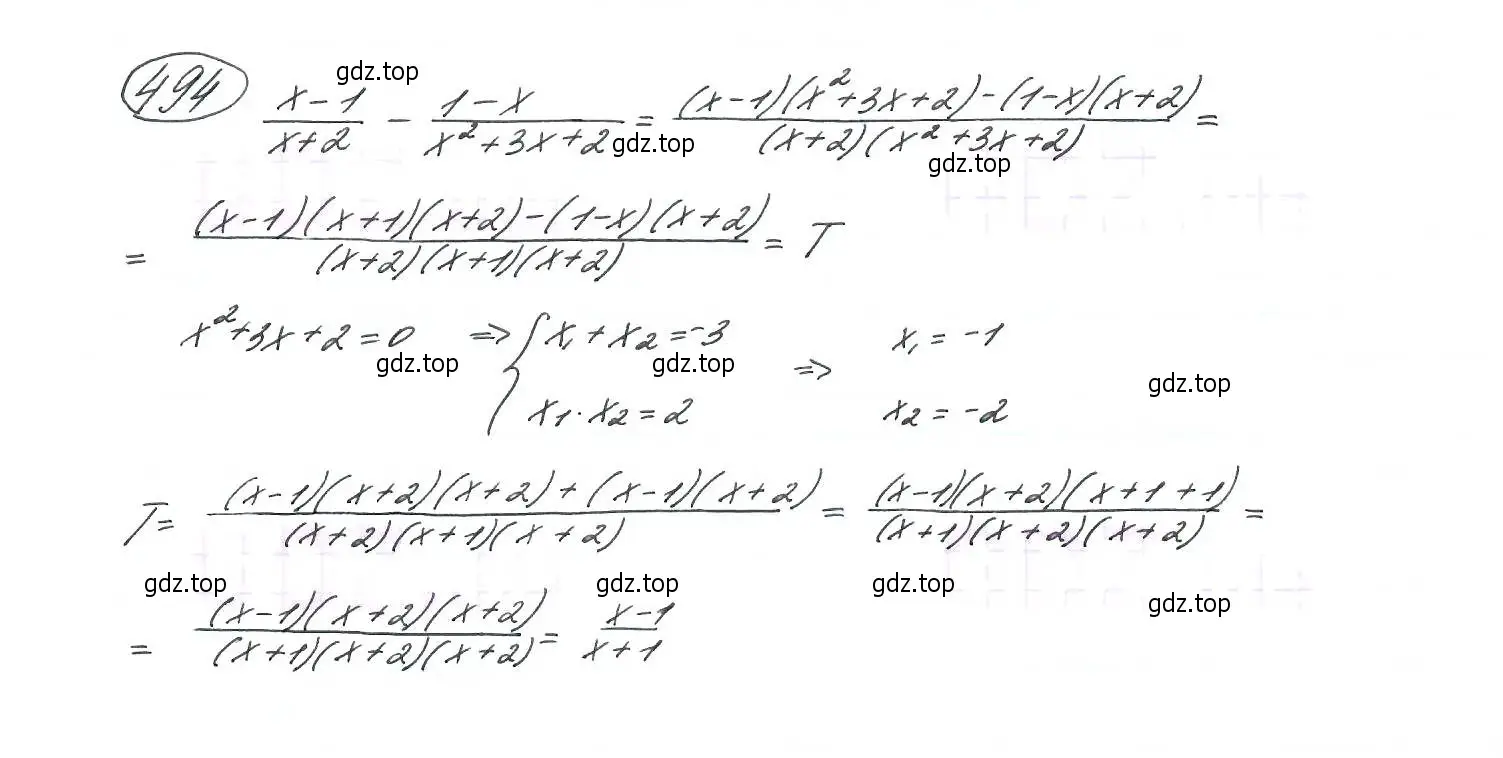 494 (x-1)/(x+2) - (1-x)/(x²+3x+2) = ((x-1)(x²+3x+2)-(1-x)(x+2))/((x+2)(x²+3x+2)) =
gdz.top
gdz.top
gdz.top
= ((x-1)(x+1)(x+2)-(1-x)(x+2))/((x+2)(x+1)(x+2)) = T
x²+3x+2=0 => { x₁+x₂=-3 => x₁=-1
gdz.top
gdz.top
gdz.top
x₁·x₂=2 x₂=-2
T= ((x-1)(x+2)(x+2)+(x-1)(x+2))/((x+2)(x+1)(x+2)) = ((x-1)(x+2)(x+1+1))/((x+1)(x+2)(x+2)) =
gdz.top
gdz.top
gdz.top
gdz.top
= ((x-1)(x+2)(x+2))/((x+1)(x+2)(x+2)) = (x-1)/(x+1)